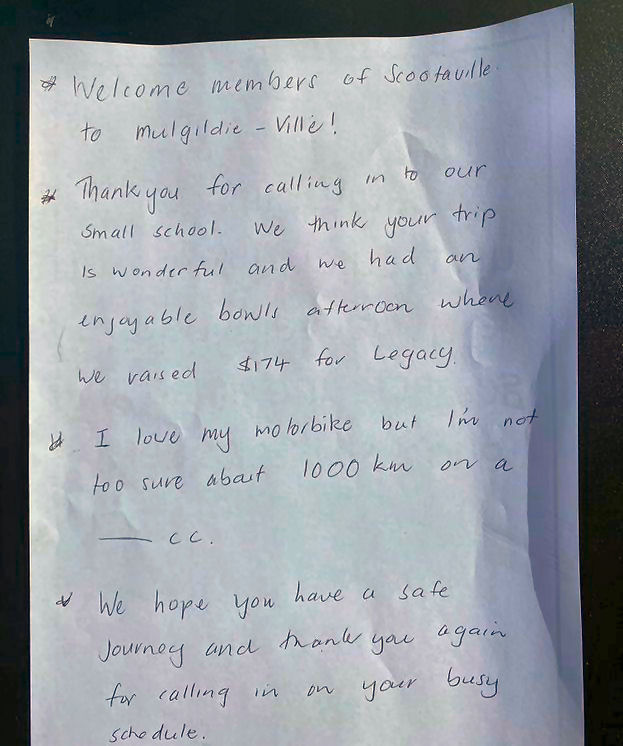 * Welcome members of Scootaville
to mulgildie - Ville!
* Thank you for calling in to our
small school. We think your trip
is wonderful and we had an
enjoyable bowls afternoon where
we raised $174 for Legacy.
* I love my motorbike but I'm not
too sure about 1000 km on a
____ cc.
* We hope you have a safe
journey and thank you again
for calling in on your busy
schedule.